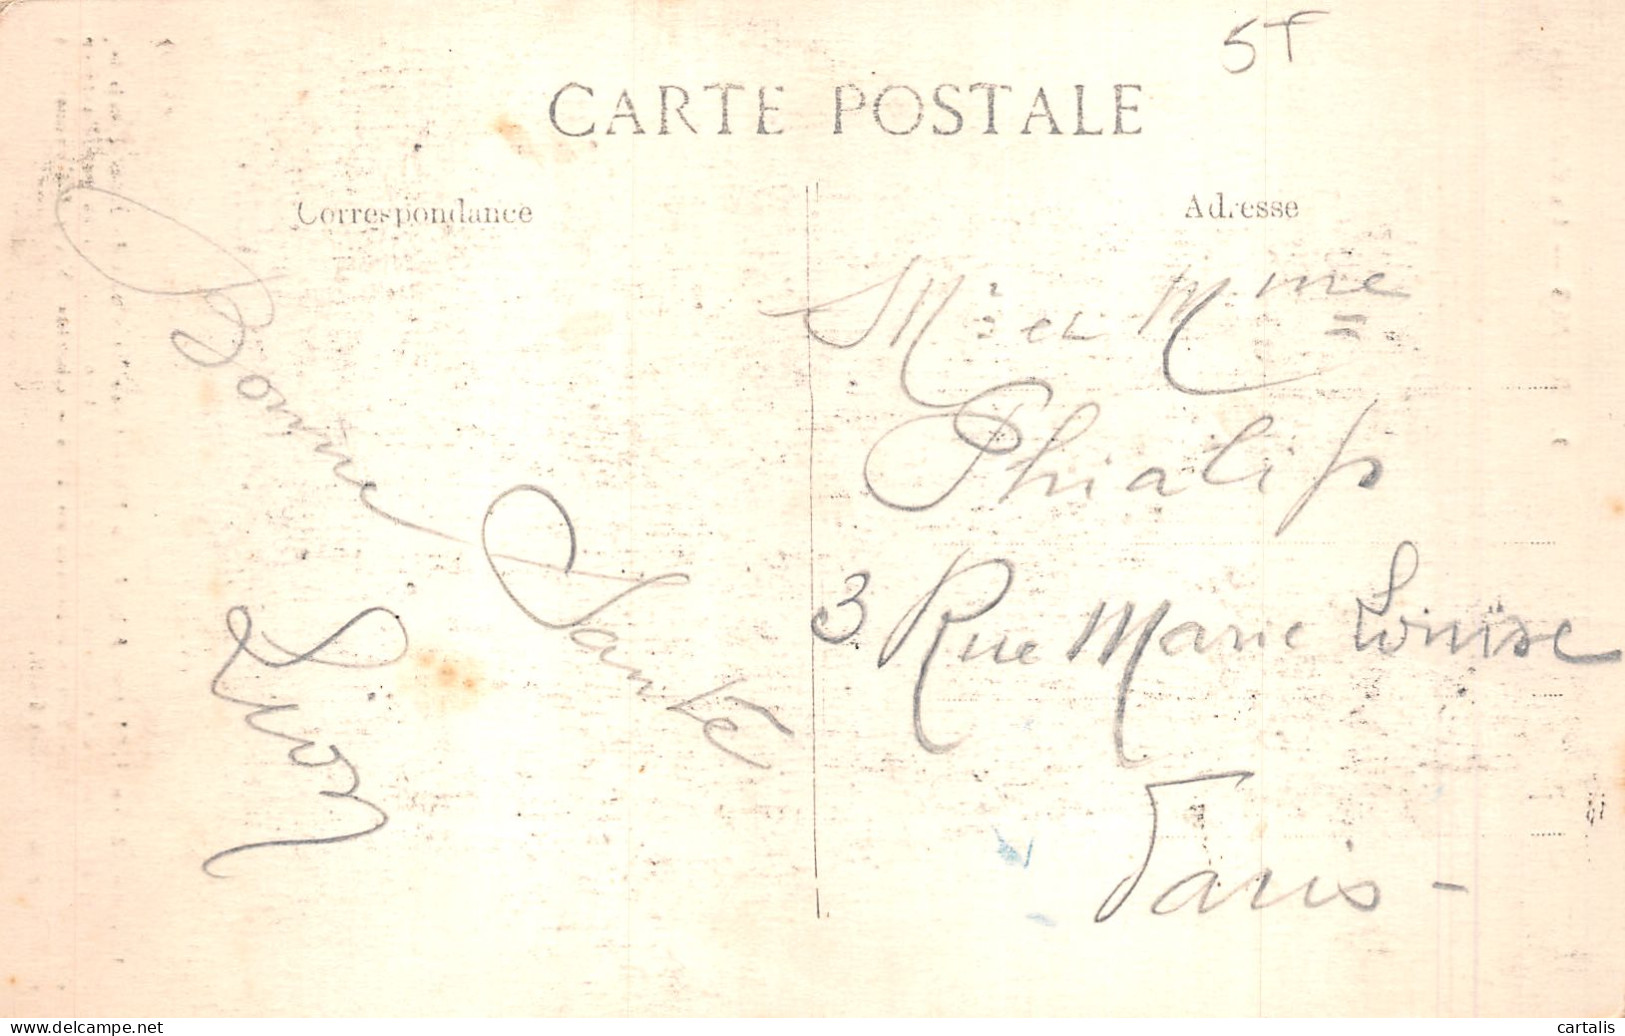 5T
CARTE POSTALE
Correspondance
Adresse
Bonne Santé
Mr et Mme
Phialip
3 Rue Marie Louise
Paris -
www.delcampe.net
cartalis